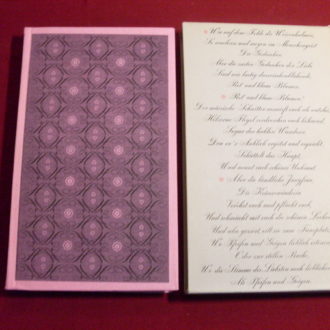 Wie auf dem Felde die Weizenhalmen,
So wachsen und wogen im Menschengeist
Die Gedanken.
Aber die zarten Gedanken der Liebe
Sind wie lustig dazwischenblühende,
Rot und blaue Blumen.
Rot und blaue Blumen!
Der mürrische Schnitter verwirft euch als nutzlos,
Hölzerne Flegel zerdreschen euch höhnend,
Sogar der hablose Wanderer,
Den eu'r Anblick ergötzt und erquickt,
Schüttelt das Haupt,
Und nennt euch schönes Unkraut.
Aber die ländliche Jungfrau,
Die Kränzewinderin,
Verehrt euch und pflückt euch,
Und schmückt mit euch die schönen Locken,
Und also geziert eilt sie zum Tanzplatz,
Wo Pfeifen und Geigen lieblich ertönen,
Oder zur stillen Buche,
Wo die Stimme des Liebsten noch lieblicher
Als Pfeifen und Geigen.